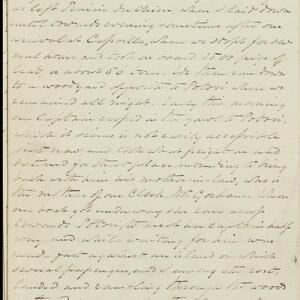 we left Prairie du Chien, when I laid down
until towards evening sometime after our
arrival at Cassville, where we stopt for several
hours and took on board 1500 pigs of
lead, or about 50 tons. We then ran down
to a woodyard opposite to Potosi where we
remained all night. Early this morning
our Captain crossed in the yawl to Potosi
which it seems is not easily accessible
just now, and took about freight &c and
returned for that place intending to bring
back with him his mother in law, who is
the mother of our Clerk, Mr. Gorham. When
our boat got under way she ran across
towards Potosi, to meet her captain half
way, and while waiting for him was
made fast against an island on which
several passengers, and I among the rest,
landed and rambling through the woods